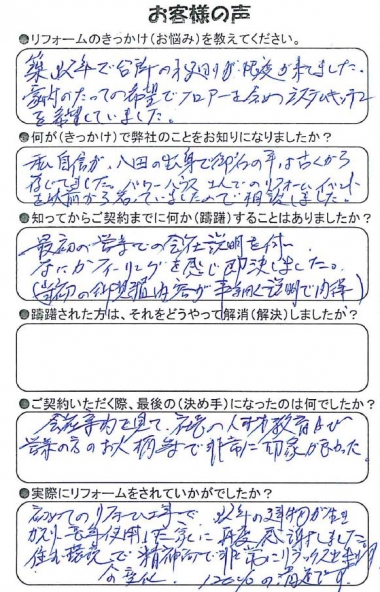 お客様の声
●リフォームのきっかけ(お悩み)を教えてください。
築 年で台所の 限度が来てました。
家内のたっての希望でフロアーを含めシステムキッチン
を希望していました。
●何が(きっかけ)で弊社のことをお知りになりましたか?
私自信が、八田の出身で御社の事は古くから
存じてました。 リフォームイベント
を以前から知っていましたので相談しました。
●知ってからご契約までに何か(躊躇)することはありましたか?
最初の営業での会社説明を
なにかフィーリングを感じ即決しました。
(当初の 内容が事細く説明で納得)
●躊躇された方は、それをどうやって解消(解決)しましたか?
●ご契約いただく際、最後の(決め手)になったのは何でしたか?
会社案内を見て、社長の人材教育及び
営業の方のお人柄等で非常に印象が良かった。
●実際にリフォームをされていかがでしたか?
初めてのリフォーム工事で、 年の建物が
長年使用した家に再度感謝しました。
住む環境で精神的で非常にリラックス出来
の変化。 120%の満足です。